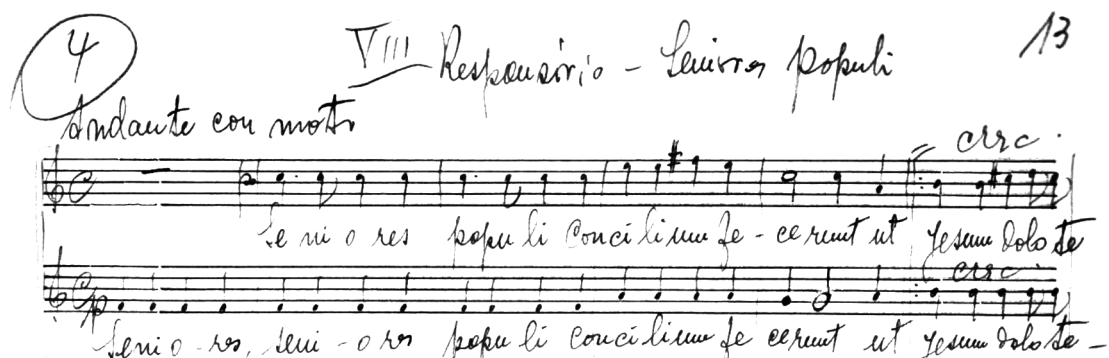 4 VIII Responsório - Seniores populi 13
Andante con moto
cresc.
Se ni o res popu li concilium fe - cerunt ut Jesum dolo te
cresc.
Seni o - res, seni - o res popu li concilium fe cerunt ut Jesum dolo te -